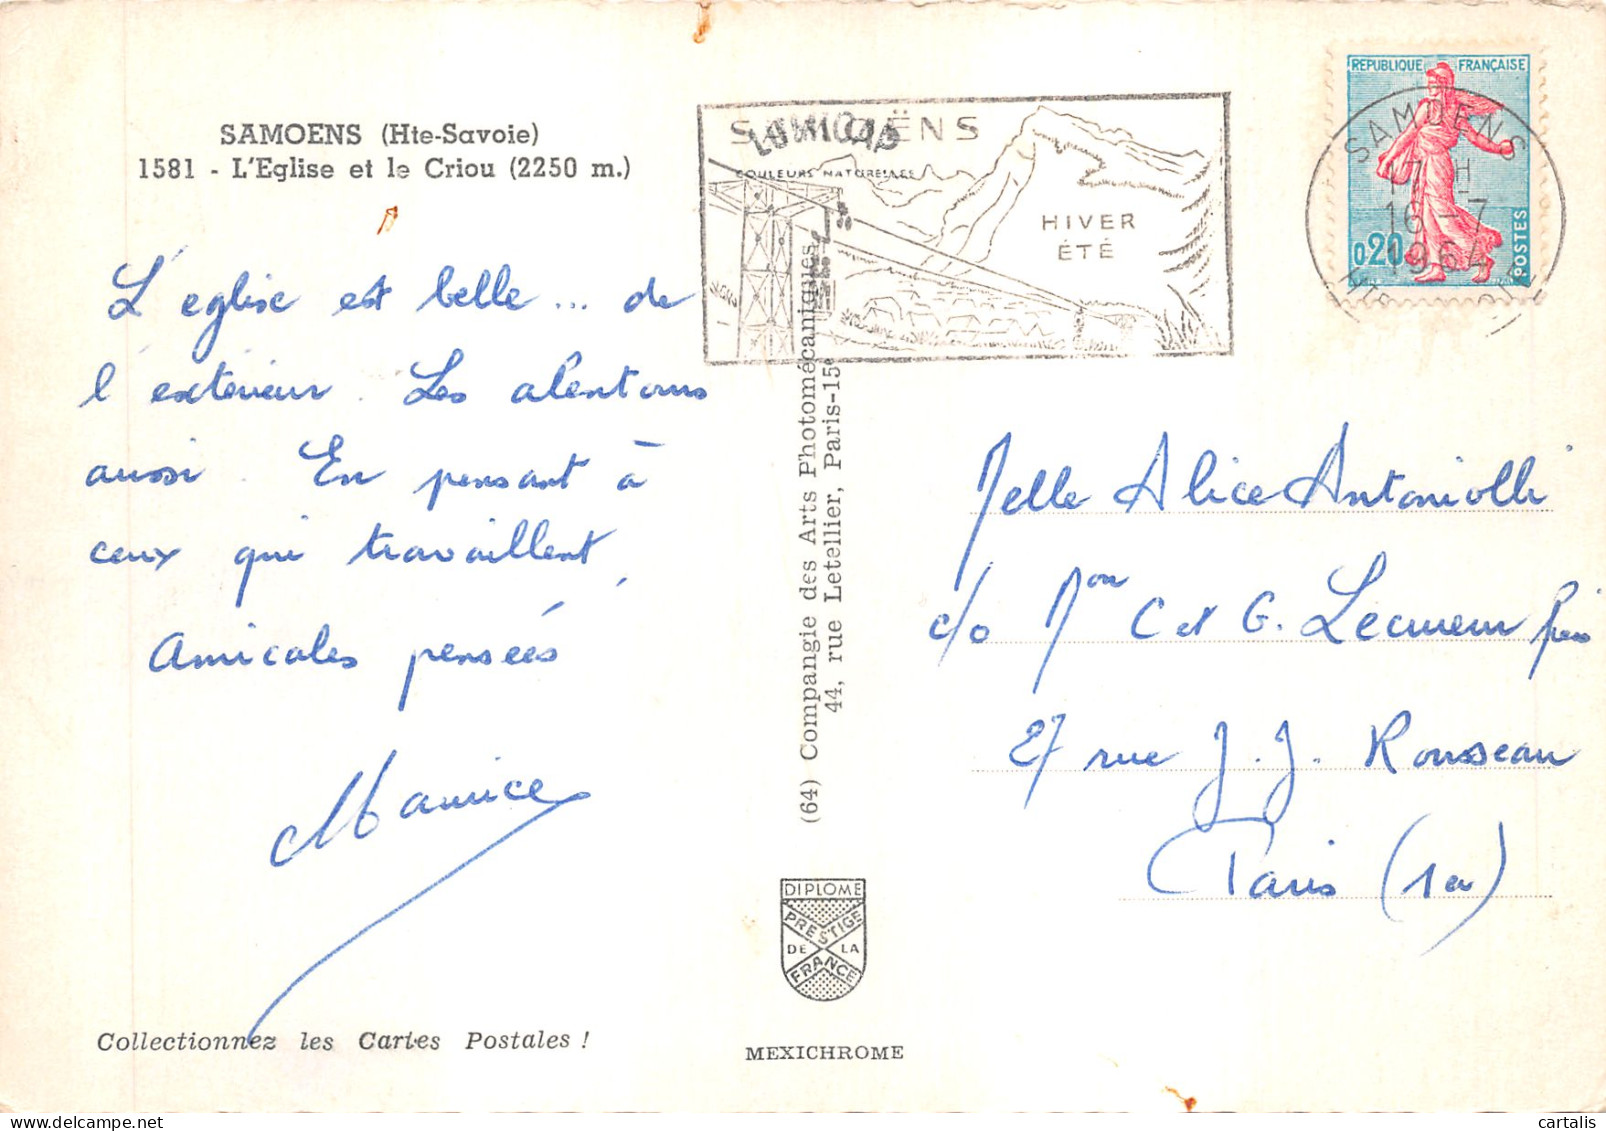 SAMOENS (Hte-Savoie)
1581 - L'Eglise et le Criou (2250 m.)
L'eglise est belle... de
l'extérieur. Les alentours
aussi. En pensant à
ceux qui travaillent,
Amicales pensées
Maurice
Collectionnez les Cartes Postales !
SAMOËNS
LUMICAP
COULEURS NATURELLES
HIVER
ÉTÉ
(64) Compangie des Arts Photomécaniques,
44, rue Letellier, Paris-15e
DIPLOME
PRESTIGE
DE LA
FRANCE
MEXICHROME
REPUBLIQUE FRANÇAISE
0,20
POSTES
SAMOENS
17 H
16-7
1964
Melle Alice Antoniolli
c/o Mon C et G. Lecuneur
27 rue J. J. Rousseau
Paris (1er)
cartalis